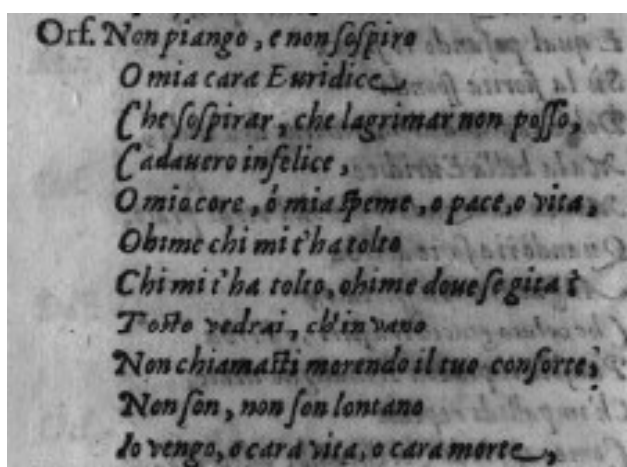 Orf. Non piango, e non ſoſpiro
O mia cara Euridice,
Che ſoſpirar, che lagrimar non poſſo,
Cadauero infelice,
O mio core, ó mia ſpeme, o pace, o vita,
Ohime chi mi t'ha tolto
Chi mi t'ha tolto, ohime doue ſe gita?
Toſto vedrai, ch'in vano
Non chiamaſti morendo il tuo conſorte,
Non ſon, non ſon lontano
Io vengo, o cara vita, o cara morte,